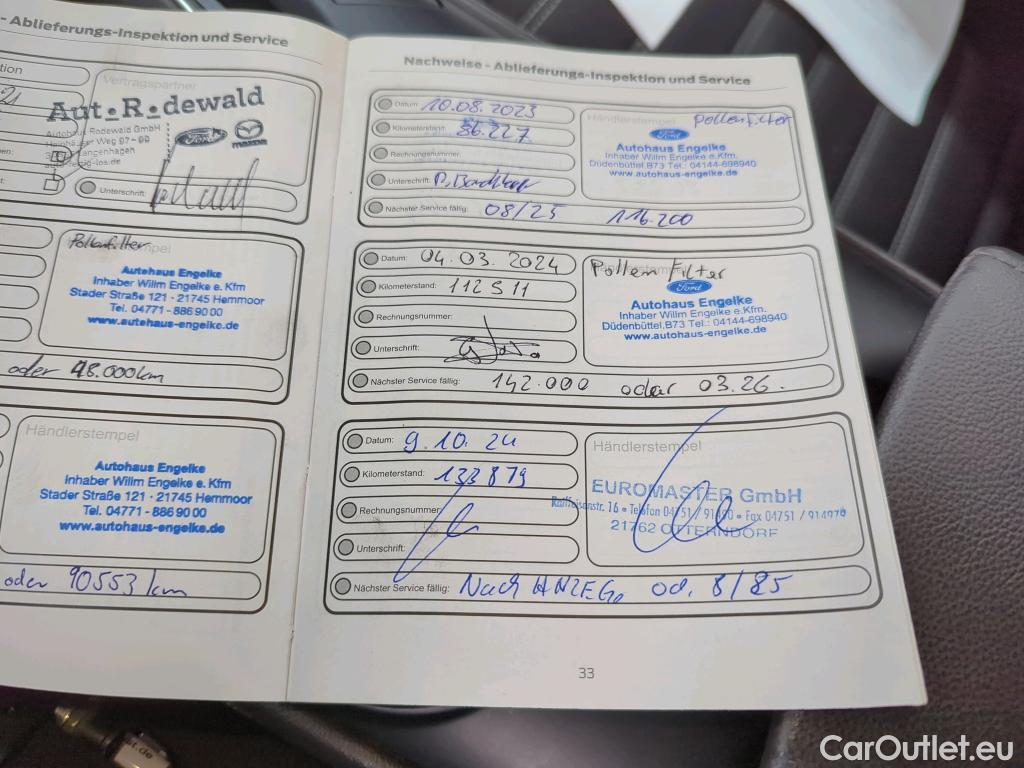 - Ablieferungs-Inspektion und Service
tion
21
Vertragspartner
Aut.R.dewald
Autohaus Rodewald GmbH
Weg 97 - 99
Langenhagen
Ford
mazda
Unterschrift:
Pollenfilter
Autohaus Engelke
Inhaber Willm Engelke e. Kfm
Stader Straße 121 - 21745 Hemmoor
Tel. 04771 - 886 90 00
www.autohaus-engelke.de
oder 48.000km
Händlerstempel
Autohaus Engelke
Inhaber Willm Engelke e. Kfm
Stader Straße 121 - 21745 Hemmoor
Tel. 04771 - 886 90 00
www.autohaus-engelke.de
oder 90553 km
Nachweise - Ablieferungs-Inspektion und Service
Datum: 10.08.2023
Kilometerstand: 86.227
Rechnungsnummer:
Unterschrift:
Nächster Service fällig: 08/25 116.200
Händlerstempel
Pollenfilter
Ford
Autohaus Engelke
Inhaber Willm Engelke e.Kfm.
Düdenbüttel.B73 Tel.: 04144-698940
www.autohaus-engelke.de
Datum: 04.03.2024
Kilometerstand: 112511
Rechnungsnummer:
Unterschrift:
Nächster Service fällig: 142.000 oder 03.26.
Pollen Filter
Ford
Autohaus Engelke
Inhaber Willm Engelke e.Kfm.
Düdenbüttel.B73 Tel.: 04144-698940
www.autohaus-engelke.de
Datum: 9.10.24
Kilometerstand: 133879
Rechnungsnummer:
Unterschrift:
Nächster Service fällig: Nach ANZEG. od. 8/25
Händlerstempel
EUROMASTER GmbH
Raiffeisenstr. 16 • Telefon 04751 / • Fax 04751 / 914920
21762 OTTERNDORF
33
CarOutlet.eu